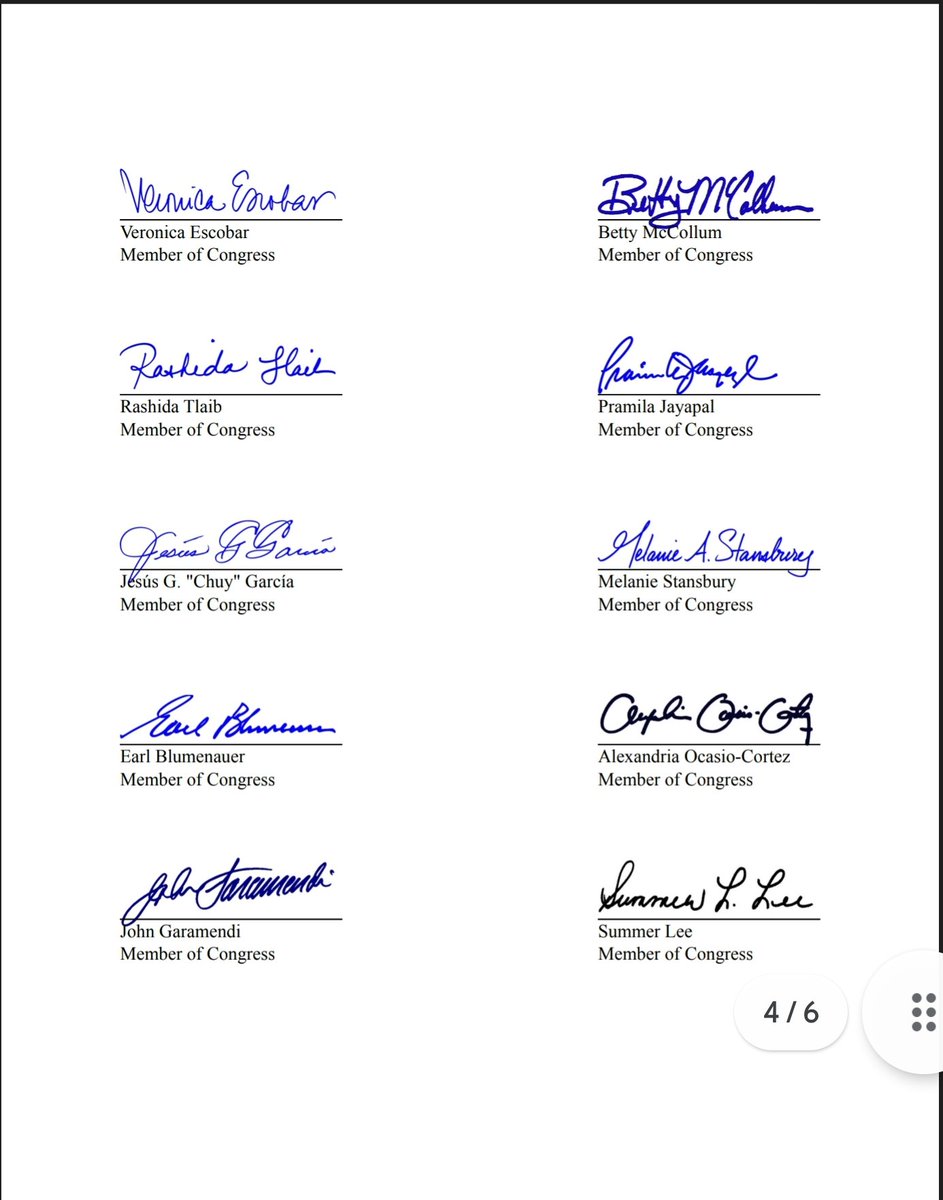 Veronica Escobar
Veronica Escobar
Member of Congress
Betty McCollum
Betty McCollum
Member of Congress
Rashida Tlaib
Rashida Tlaib
Member of Congress
Pramila Jayapal
Pramila Jayapal
Member of Congress
Jesús G García
Jesús G. "Chuy" García
Member of Congress
Melanie A. Stansbury
Melanie Stansbury
Member of Congress
Earl Blumenauer
Earl Blumenauer
Member of Congress
Alexandria Ocasio-Cortez
Member of Congress
John Garamendi
John Garamendi
Member of Congress
Summer L. Lee
Summer Lee
Member of Congress
4 / 6